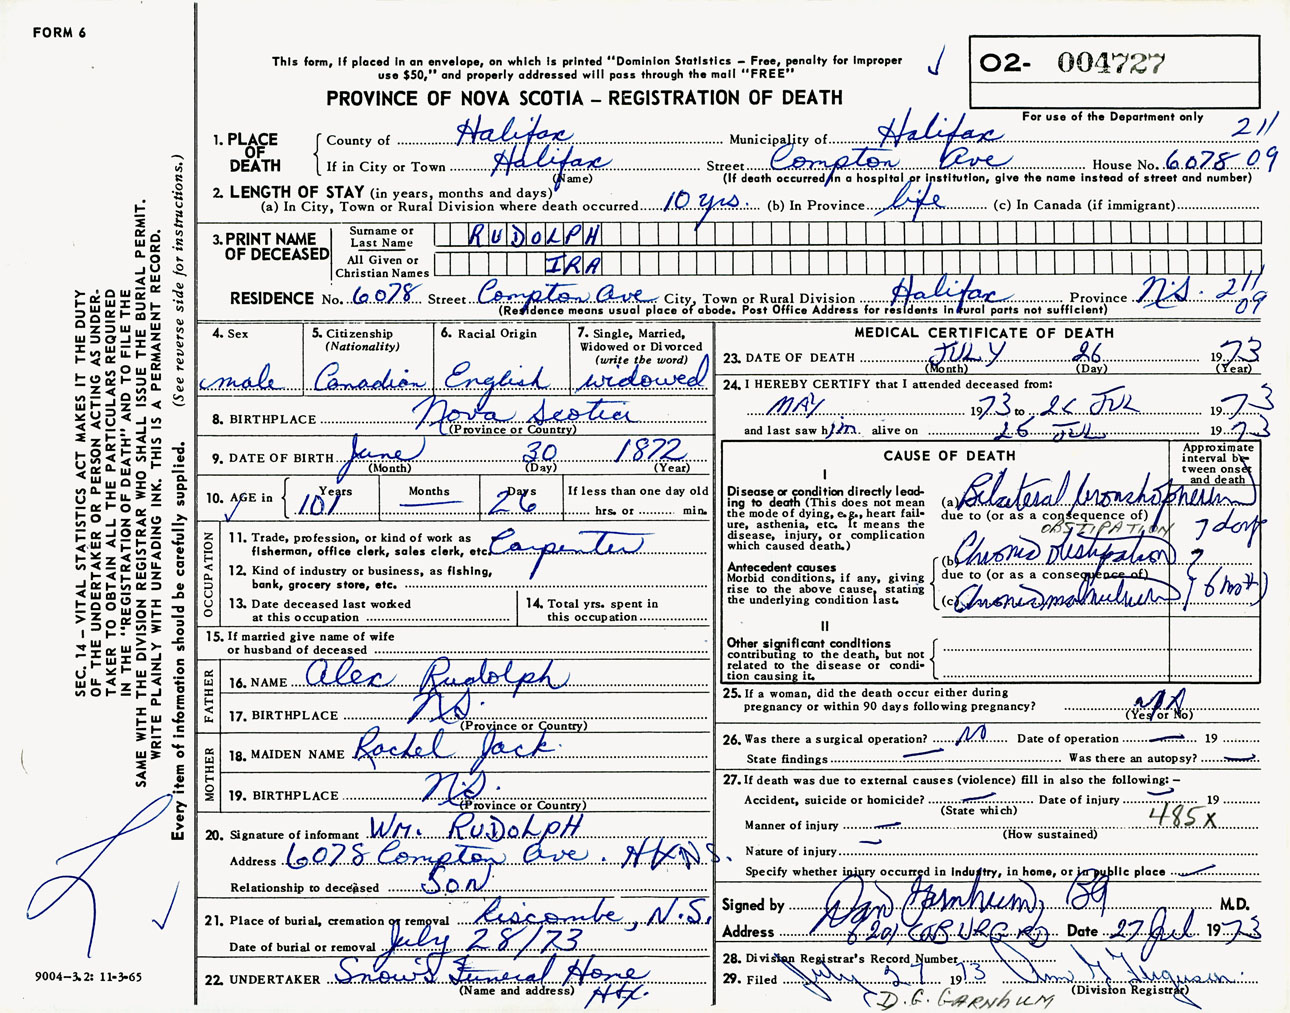 FORM 6
This form, if placed in an envelope, on which is printed "Dominion Statistics – Free, penalty for improper
use $50," and properly addressed will pass through the mail "FREE"
O2- 004727
PROVINCE OF NOVA SCOTIA – REGISTRATION OF DEATH
For use of the Department only
211
09
1. PLACE OF DEATH
County of Halifax Municipality of Halifax
If in City or Town Halifax Street Compton Ave House No. 6078
(Name) (If death occurred in a hospital or institution, give the name instead of street and number)
2. LENGTH OF STAY (in years, months and days)
(a) In City, Town or Rural Division where death occurred 10 yrs. (b) In Province life (c) In Canada (if immigrant)
3. PRINT NAME OF DECEASED
Surname or Last Name RUDOLPH
All Given or Christian Names IRA
RESIDENCE No. 6078 Street Compton Ave City, Town or Rural Division Halifax Province N.S. 211
09
(Residence means usual place of abode. Post Office Address for residents in rural parts not sufficient)
4. Sex
male
5. Citizenship
(Nationality)
Canadian
6. Racial Origin
English
7. Single, Married,
Widowed or Divorced
(write the word)
widowed
8. BIRTHPLACE Nova Scotia
(Province or Country)
9. DATE OF BIRTH June 30 1872
(Month) (Day) (Year)
10. AGE in
Years Months Days If less than one day old
101 — 26 hrs. or min.
OCCUPATION
11. Trade, profession, or kind of work as
fisherman, office clerk, sales clerk, etc. Carpenter
12. Kind of industry or business, as fishing,
bank, grocery store, etc.
13. Date deceased last worked
at this occupation
14. Total yrs. spent in
this occupation
15. If married give name of wife
or husband of deceased
FATHER
16. NAME Alex Rudolph
17. BIRTHPLACE N.S.
(Province or Country)
MOTHER
18. MAIDEN NAME Rachel Jack
19. BIRTHPLACE N.S.
(Province or Country)
20. Signature of informant WM. RUDOLPH
Address 6078 Compton Ave. HFX N.S.
Relationship to deceased Son
21. Place of burial, cremation or removal Liscombe, N.S.
Date of burial or removal July 28/73
22. UNDERTAKER Snow's Funeral Home
(Name and address) Hfx.
MEDICAL CERTIFICATE OF DEATH
23. DATE OF DEATH JULY 26 1973
(Month) (Day) (Year)
24. I HEREBY CERTIFY that I attended deceased from:
MAY 1973 to 26 JUL 1973
and last saw him alive on 26 JUL 1973
CAUSE OF DEATH
Approximate
interval be-
tween onset
and death
I
Disease or condition directly lead-
ing to death (This does not mean
the mode of dying, e.g., heart fail-
ure, asthenia, etc. It means the
disease, injury, or complication
which caused death.)
(a) Bilateral
due to (or as a consequence of)
OBSTIPATION
7 days
Antecedent causes
Morbid conditions, if any, giving
rise to the above cause, stating
the underlying condition last.
(b) Chronic obstipation ?
due to (or as a consequence of)
(c) Chronic malnutrition 6 mths
II
Other significant conditions
contributing to the death, but not
related to the disease or condi-
tion causing it.
25. If a woman, did the death occur either during
pregnancy or within 90 days following pregnancy? N/A
(Yes or No)
26. Was there a surgical operation? NO Date of operation — 19
State findings — Was there an autopsy? —
27. If death was due to external causes (violence) fill in also the following: –
Accident, suicide or homicide? — Date of injury — 19
(State which)
Manner of injury — 485X
(How sustained)
Nature of injury —
Specify whether injury occurred in industry, in home, or in public place —
Signed by Dan Garnhum M.D.
Address 6201 COBURG RD Date 27 Jul 1973
28. Division Registrar's Record Number
29. Filed July 27 1973 Ferguson
(Division Registrar)
(D.G. GARNHUM
SEC. 14 – VITAL STATISTICS ACT MAKES IT THE DUTY
OF THE UNDERTAKER OR PERSON ACTING AS UNDER-
TAKER TO OBTAIN ALL THE PARTICULARS REQUIRED
IN THE "REGISTRATION OF DEATH" AND TO FILE THE
SAME WITH THE DIVISION REGISTRAR WHO SHALL ISSUE THE BURIAL PERMIT.
WRITE PLAINLY WITH UNFADING INK. THIS IS A PERMANENT RECORD.
Every item of information should be carefully supplied. (See reverse side for instructions.)
9004–3.2: 11-3-65